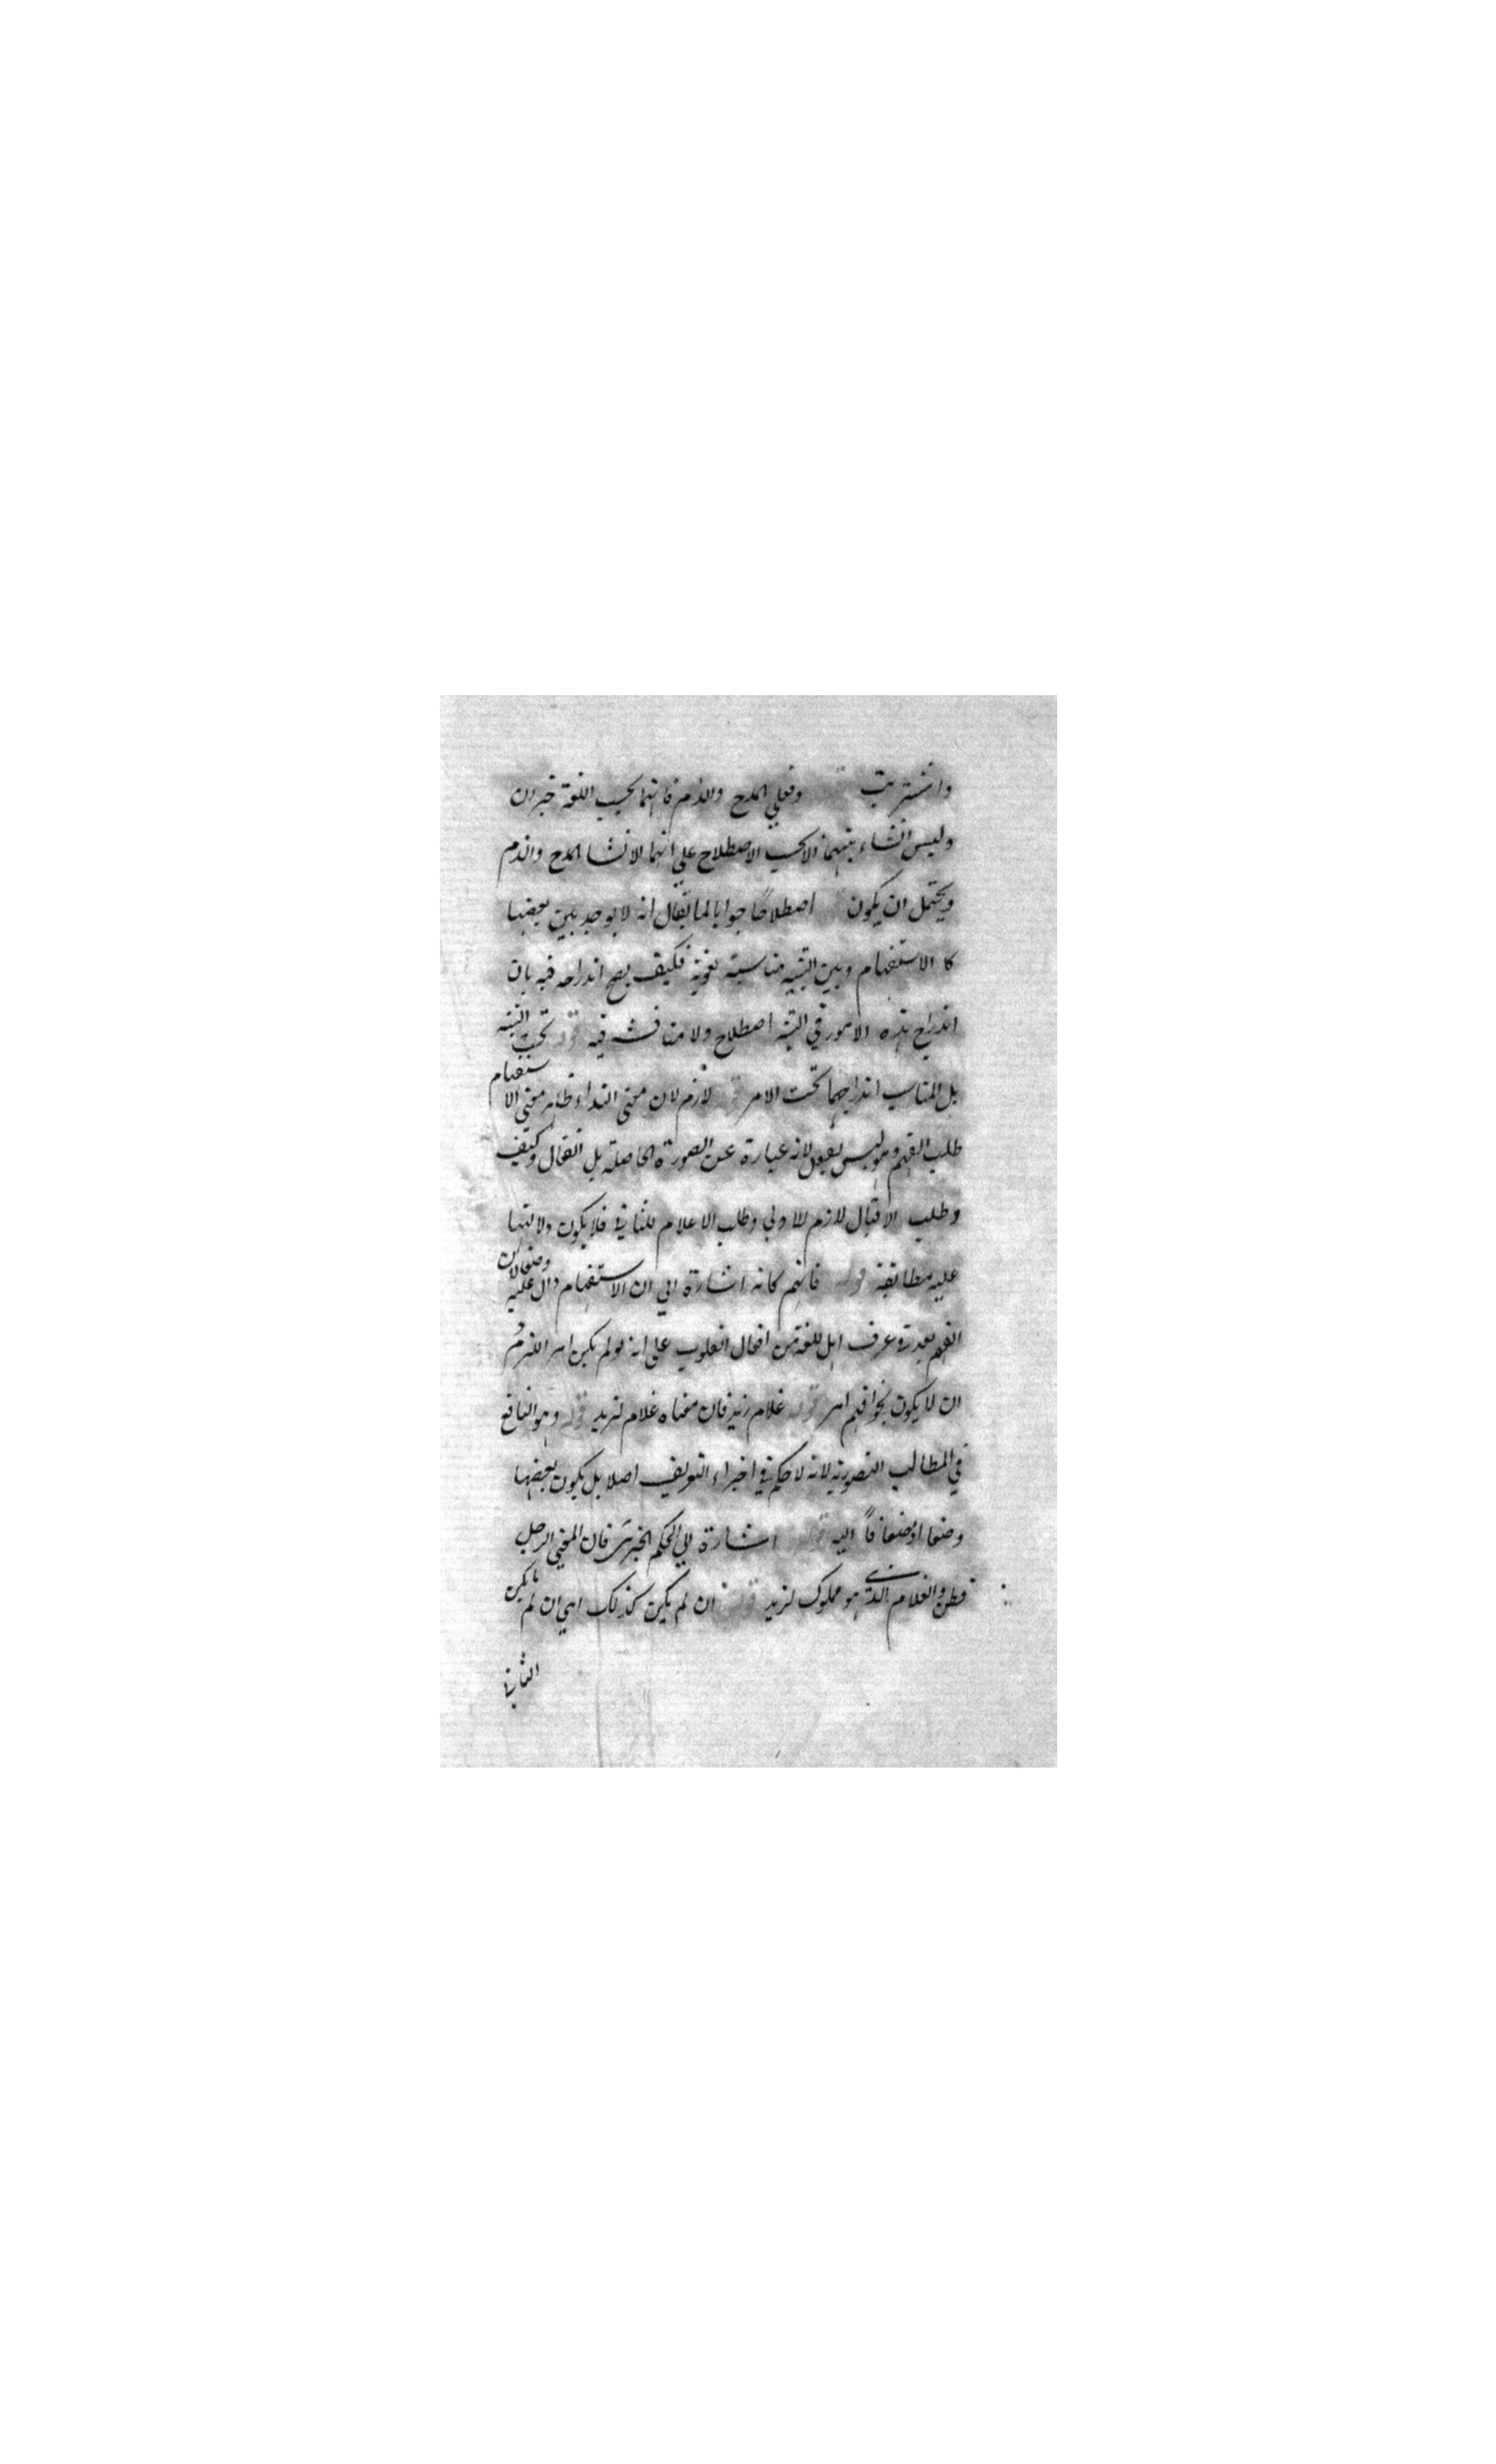 واشتريت وفعلي المدح والذم فانهما بحسب اللغة خبران
وليس انشاء بينهما الا بحسب الاصطلاح علي انهما لانشا المدح والذم
ويحتمل ان يكون اصطلاحا جوابا لما يقال انه لا يوجد بين بعضها
كا الاستفهام وبين التنبيه مناسبة لغوية فكيف يصح اندراجه فيه بان
اندراج هذه الامور في التنبيه اصطلاح ولا مناقشة فيه قوله تحت التنبيه
بل المناسب اندراجهما تحت الامر قوله لازم لان معنى النداء ظاهر معنى الاستفهام
طلب الفهم وهو ليس بفعل لانه عبارة عن الصورة الحاصلة بل انفعال وكيف
وطلب الاقبال لازم للاولي وطلب الاعلام للثاني فلا يكون دلالتها
عليه مطابقة قوله فافهم كانه اشارة الي ان الاستفهام دال عليه وضعا لان
الفهم يعد في عرف اهل اللغة من افعال القلوب على انه لو لم يكن امر اللزم
ان لا يكون نحو افهم امر قوله غلام زيد فان معناه غلام لزيد قوله وهو النافع
في المطالب التصورية لانه لا حكم في اجزاء التعريف اصلا بل يكون بعضها
وصفا او مضافا اليه قوله اشارة الي الحكم الخبري فان المعنى الرجل
فطن والغلام الذي هو مملوك لزيد قوله ان لم يكن كذلك اي ان لم يكن
الثاني